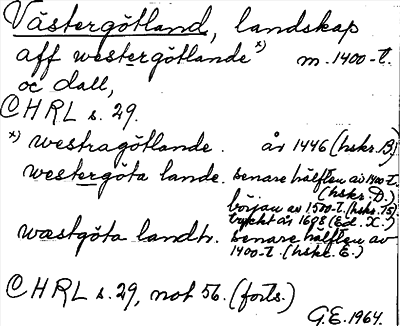 Västergötland, landskap
aff westergötlande x) m. 1400-t.
oc dall,
CHRL s. 29.
x) westragötlande. år 1446 (hskr. B)
westergöta lande. senare hälften av 1400-t.
(hskr. D.)
början av 1500-t. (hskr.
tryckt år 1608 (Ed. X.)
wastgöta landh. senare hälften av
1400-t. (hskr. E.)
CHRL s. 29, not 56. (forts.)
G.E. 1964.